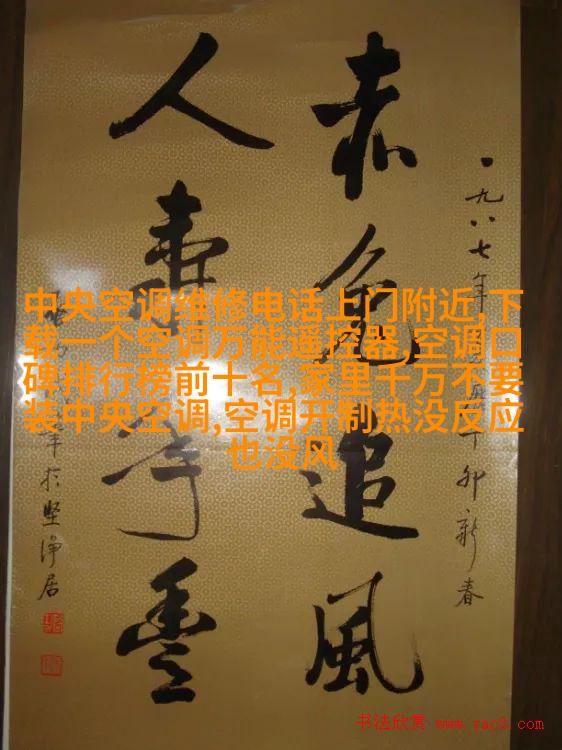 中央空调维修电话上门附近,下
载一个空调万能遥控器,空调口
碑排行榜前十名,家里千万不要
装中央空调,空调开制热没反应
也没风
一九八七年丁卯新春
赤兔追風
人壽年豐
年於坚净居
书法欣赏 www.yac8.com